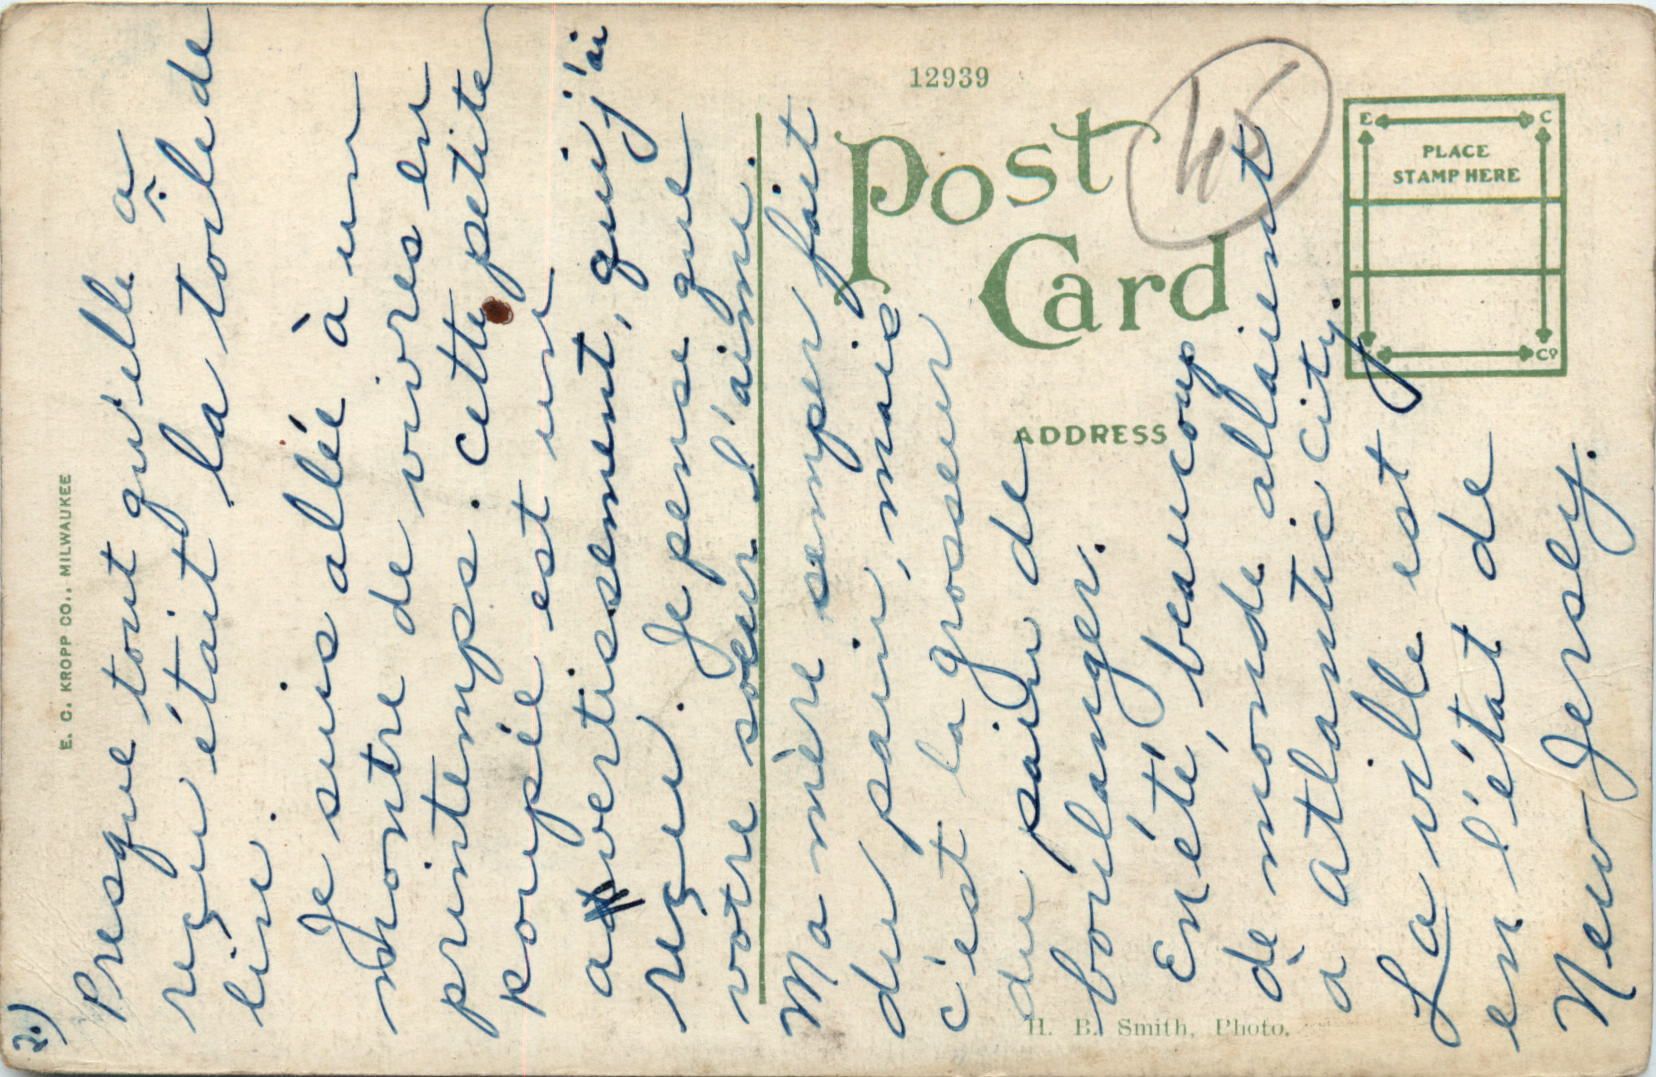 2.)
Presque tout qu'elle a
reçu était la toile de
lin.
Je suis allée à un
montre de vivres en
printemps. Cette petite
poupée est un
avertissement, qui j'ai
reçu. Je pense que
votre soeur l'aime.
Ma mère semper fait
du pain, mais
c'est la grosseur
du pain de
boulanger.
En été, beaucoup
dè monde allaient
à Atlantic City.
La ville est
en l'état de
New Jersey.
E. C. KROPP CO., MILWAUKEE
12939
45
Post
Card
ADDRESS
E C
PLACE
STAMP HERE
Co
H. B. Smith, Photo.